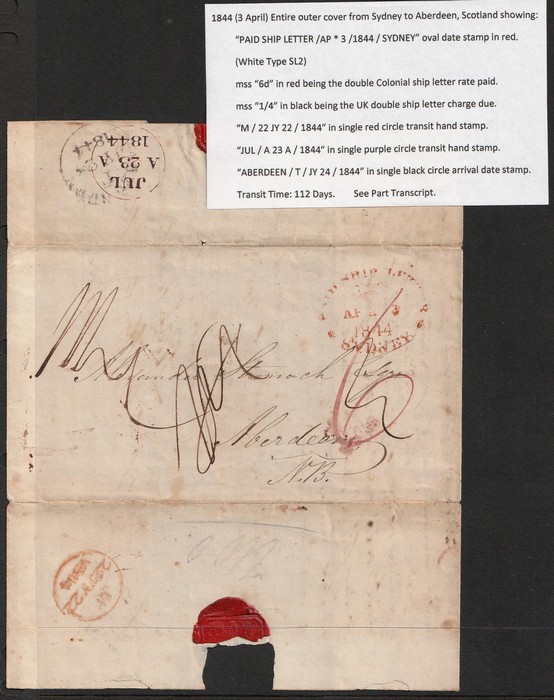 1844 (3 April) Entire outer cover from Sydney to Aberdeen, Scotland showing:
“PAID SHIP LETTER /AP * 3 /1844 / SYDNEY” oval date stamp in red.
(White Type SL2)
mss “6d” in red being the double Colonial ship letter rate paid.
mss “1/4” in black being the UK double ship letter charge due.
“M / 22 JY 22 / 1844” in single red circle transit hand stamp.
“JUL / A 23 A / 1844” in single purple circle transit hand stamp.
“ABERDEEN / T / JY 24 / 1844” in single black circle arrival date stamp.
Transit Time: 112 Days. See Part Transcript.
JUL
A 23 A
1844
PAID SHIP LETTER
AP 3
1844
SYDNEY
6
Esqr
Aberdeen
N.B.
M
22 JY 22
1844